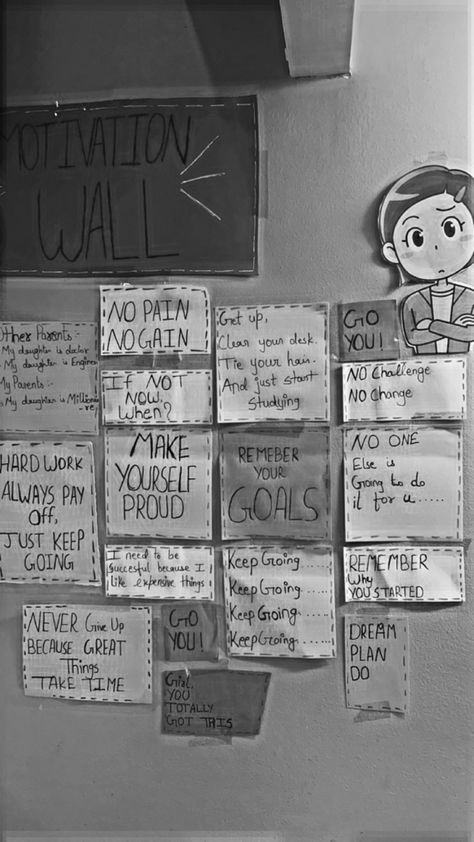 MOTIVATION
WALL
Other Parents :-
My daughter is doctor
My daughter is Engineer
My Parents :-
My daughter is Millionai
-re
NO PAIN
NO GAIN
Get up,
Clear your desk.
Tie your hair.
And just start
studying
GO
YOU!
If NOT
NOW,
When?
NO Challenge
NO Change
HARD WORK
ALWAYS PAY
Off,
JUST KEEP
GOING
MAKE
YOURSELF
PROUD
REMEBER
YOUR
GOALS
NO ONE
Else is
Going to do
it for u.....
I need to be
Succesful because I
like expensive things
Keep Going....
Keep Going....
Keep Going....
Keep Going......
REMEMBER
Why
YOU STARTED
NEVER Give Up
BECAUSE GREAT
Things
TAKE TIME
GO
YOU!
DREAM
PLAN
DO
Girl,
YOU
TOTALLY
GOT THIS